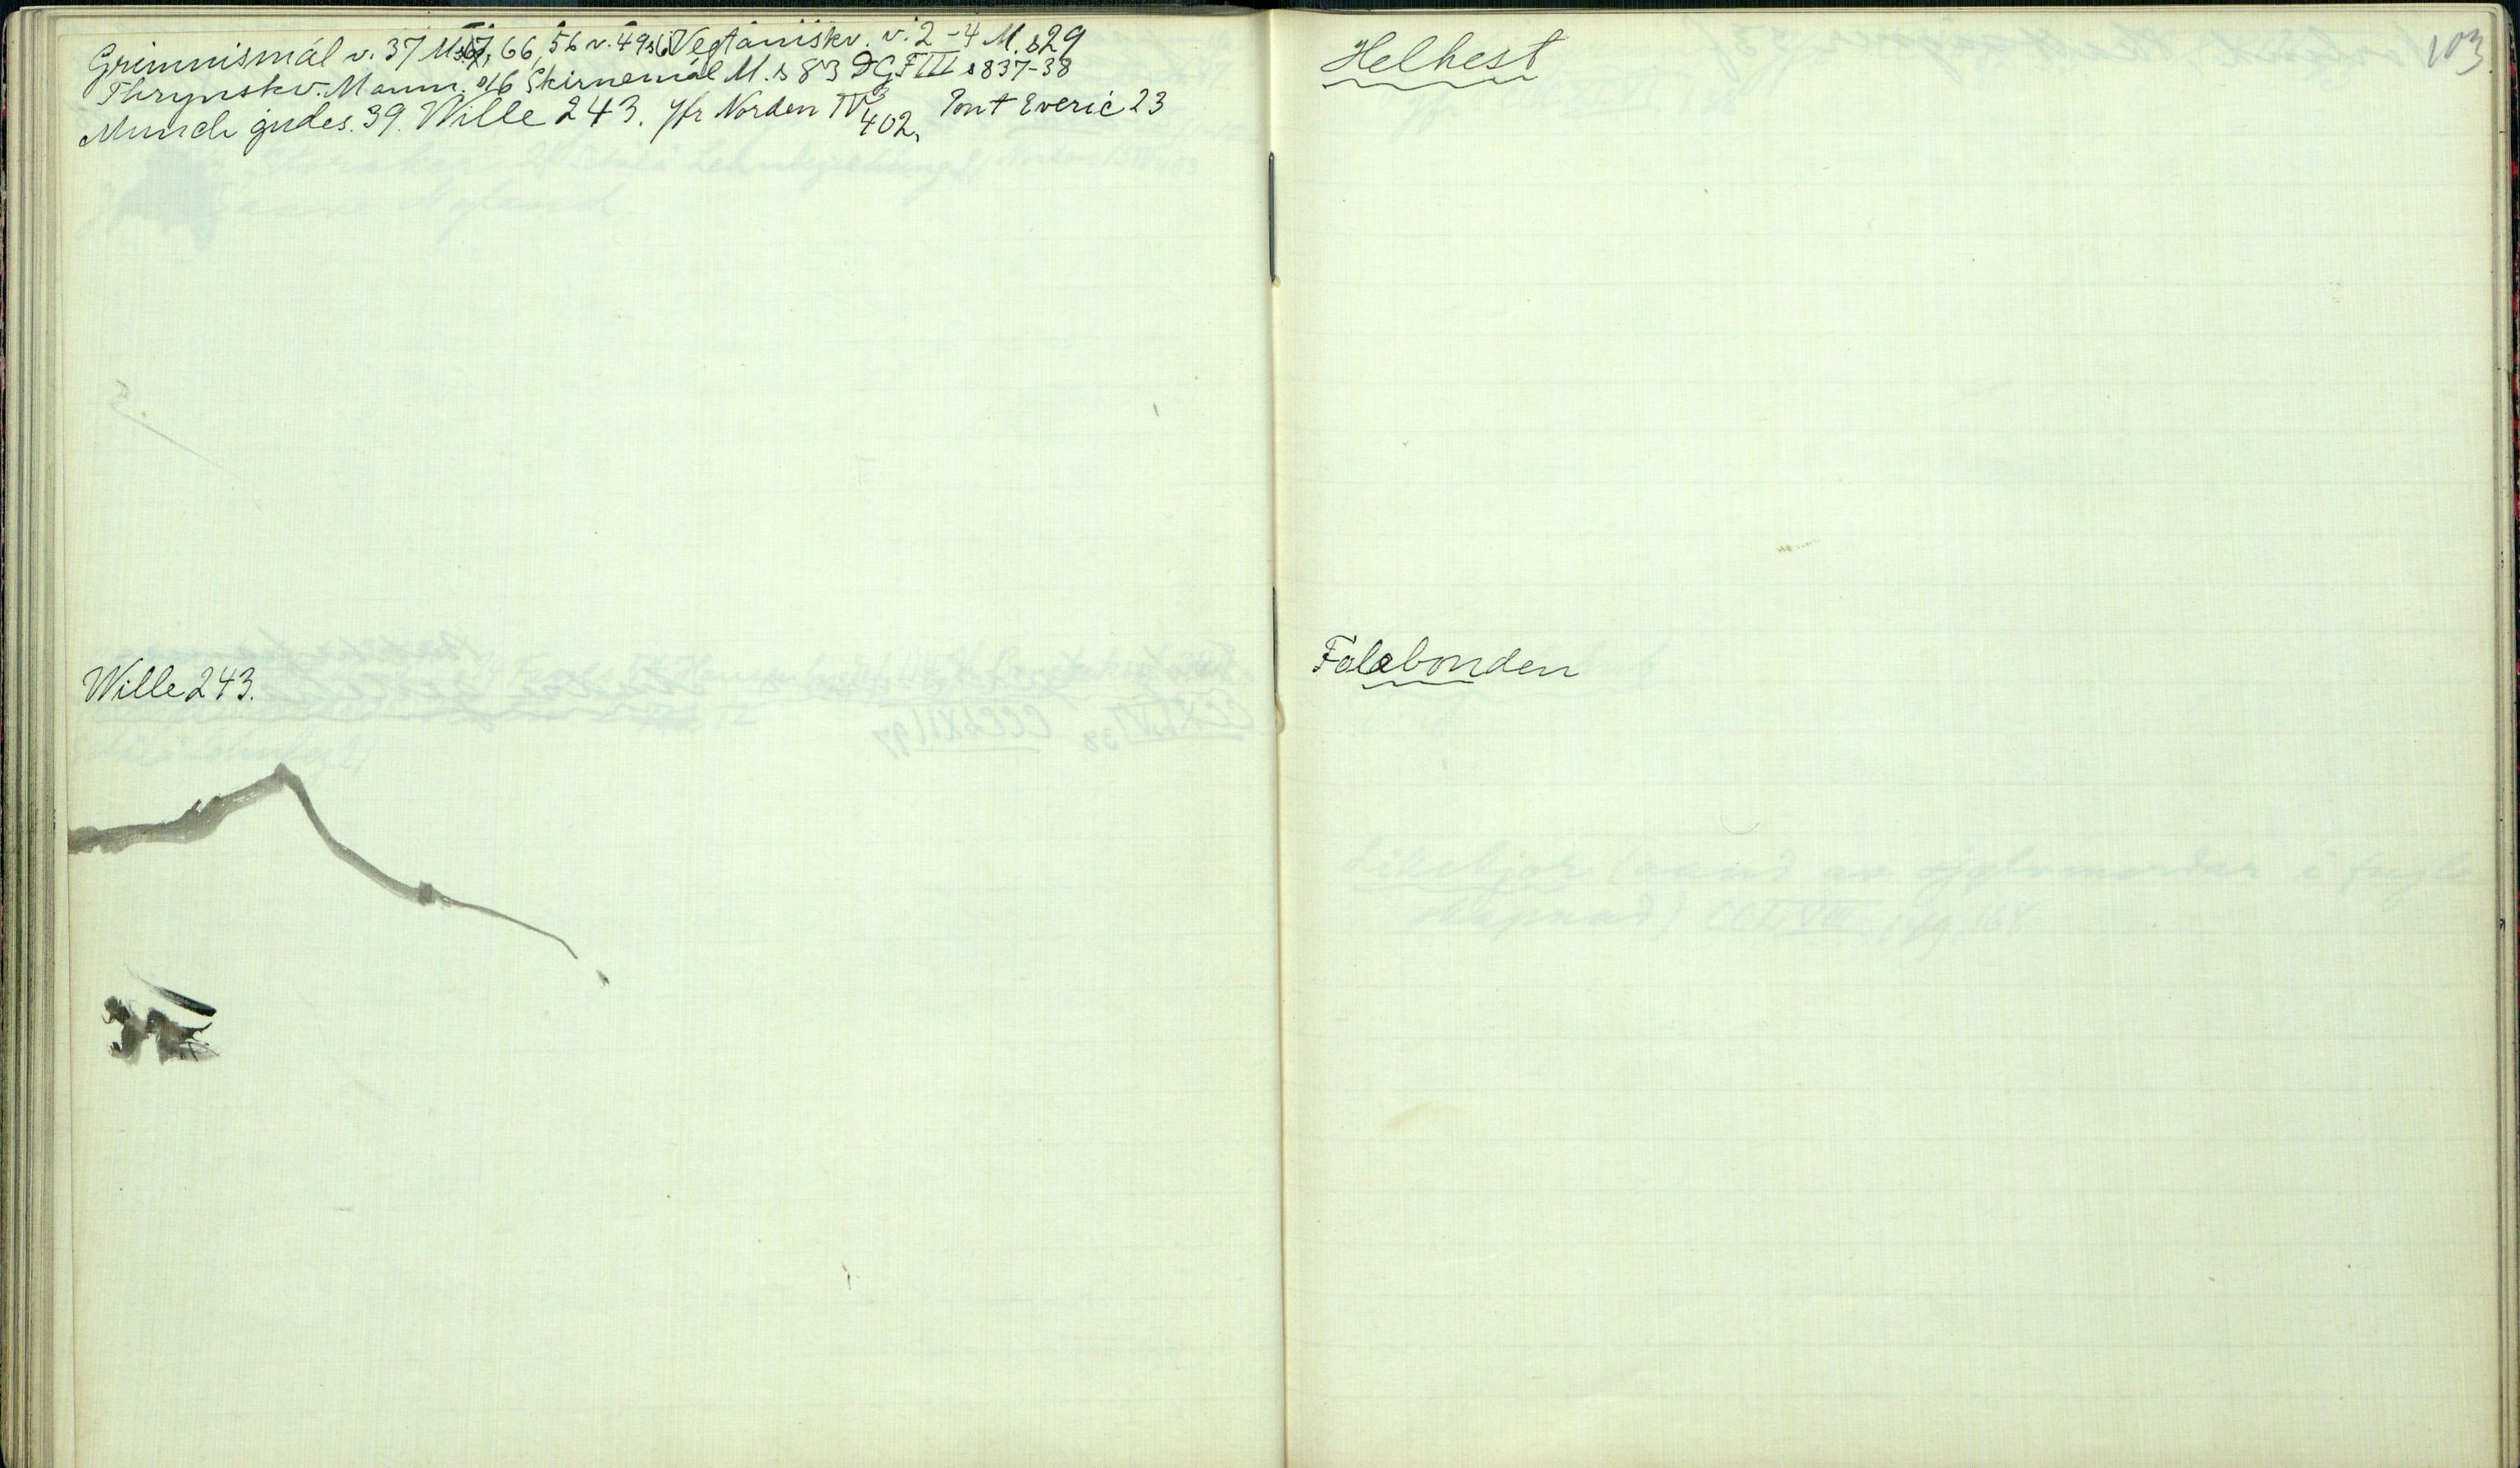 Grimnismál v. 37 M. 66, 56 v. 49 Vegtamskv. v. 2-4 M. s 29
Thrymskv. Mann. 16 Skirnemál M. s 83 DGF III s 837-38
Munch gudes. 39. Wille 243. Jfr Norden IV 402, Pont Everic 23
Wille 243.
103
Helhest
Folabonden